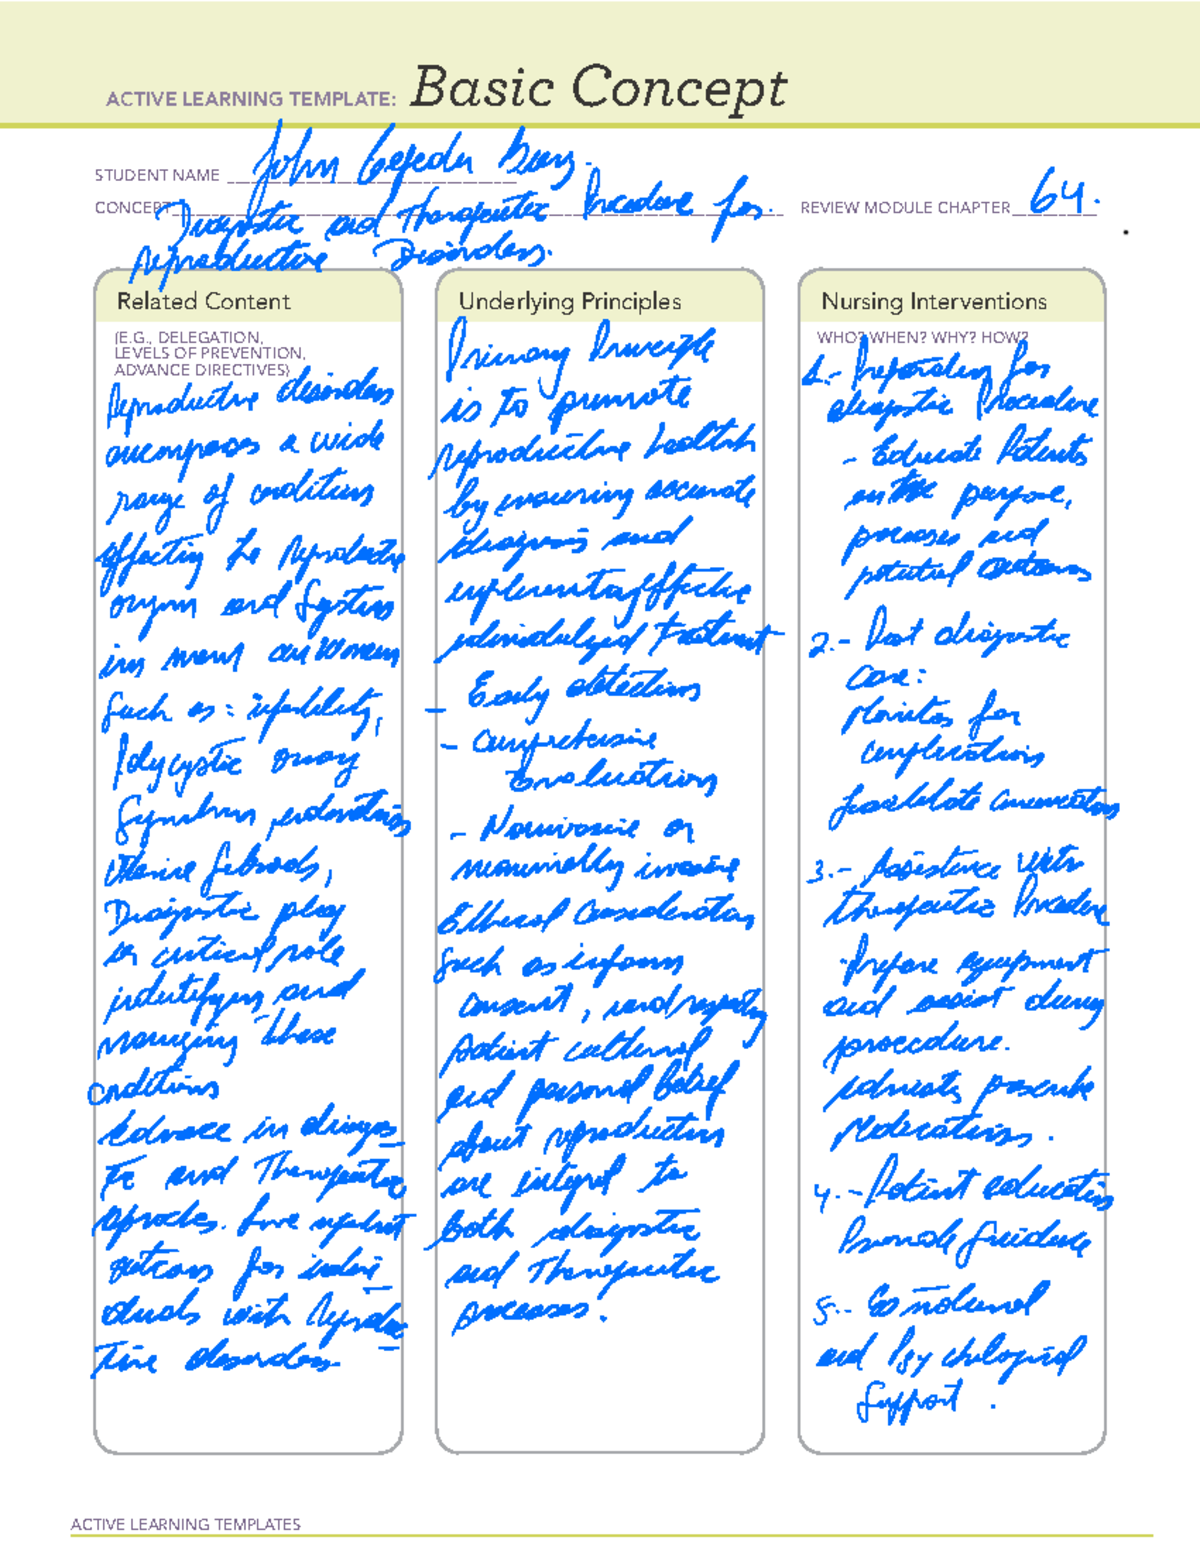 ACTIVE LEARNING TEMPLATE: Basic Concept
STUDENT NAME John
CONCEPT Diagnostic and Therapeutic Procedure for
REVIEW MODULE CHAPTER 64.
Reproductive Disorders.
Related Content
(E.G., DELEGATION,
LEVELS OF PREVENTION,
ADVANCE DIRECTIVES)
Reproductive disorders
encompasses a wide
range of conditions
affecting the Reproductive
organ and System
in men women
Such as: infertility,
Polycystic ovary
Uterine fibroids,
Diagnostic play
critical role
identifying and
managing these
conditions
in diagnos_
tic and Therapeutic
for indivi_
duals with Reproduc_
tive
Underlying Principles
Primary Principle
is to promote
reproductive health
by ensuring accurate
diagnosis and
effective
individualized treatment
- Early detection
- Comprehensive
Evaluation
- Noninvasive or
minimally invasive
Ethical Consideration
Such as inform
consent, and respecting
patient cultural
and personal belief
about reproduction
are integral to
both diagnostic
and Therapeutic
processes.
Nursing Interventions
WHO? WHEN? WHY? HOW?
1.- for
diagnostic Procedure
- Educate Patients
on the purpose,
processes and
potential outcomes
2.- Post diagnostic
Care:
Monitor for
complications
3.- Assistance with
therapeutic Procedure
Prepare equipment
and assist during
procedure.
Medications.
4.- Patient education
Provide Guidance
5.- Emotional
and Psychological
Support.
ACTIVE LEARNING TEMPLATES